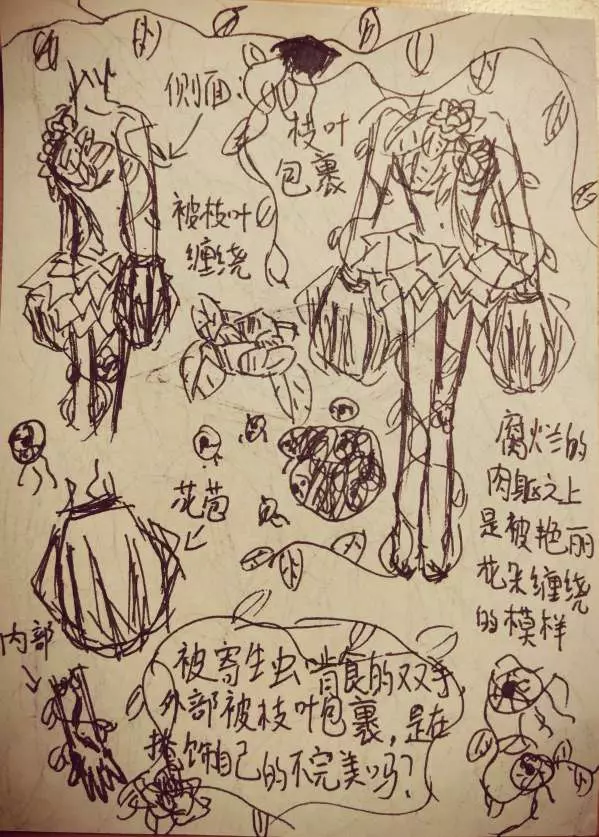 侧面：
枝叶
包裹
被枝叶
缠绕
花苞
腐烂的
肉躯之上
是被艳丽
花朵缠绕
的模样
内部
被寄生虫啃食的双手，
外部被枝叶包裹，是在
掩饰自己的不完美吗？